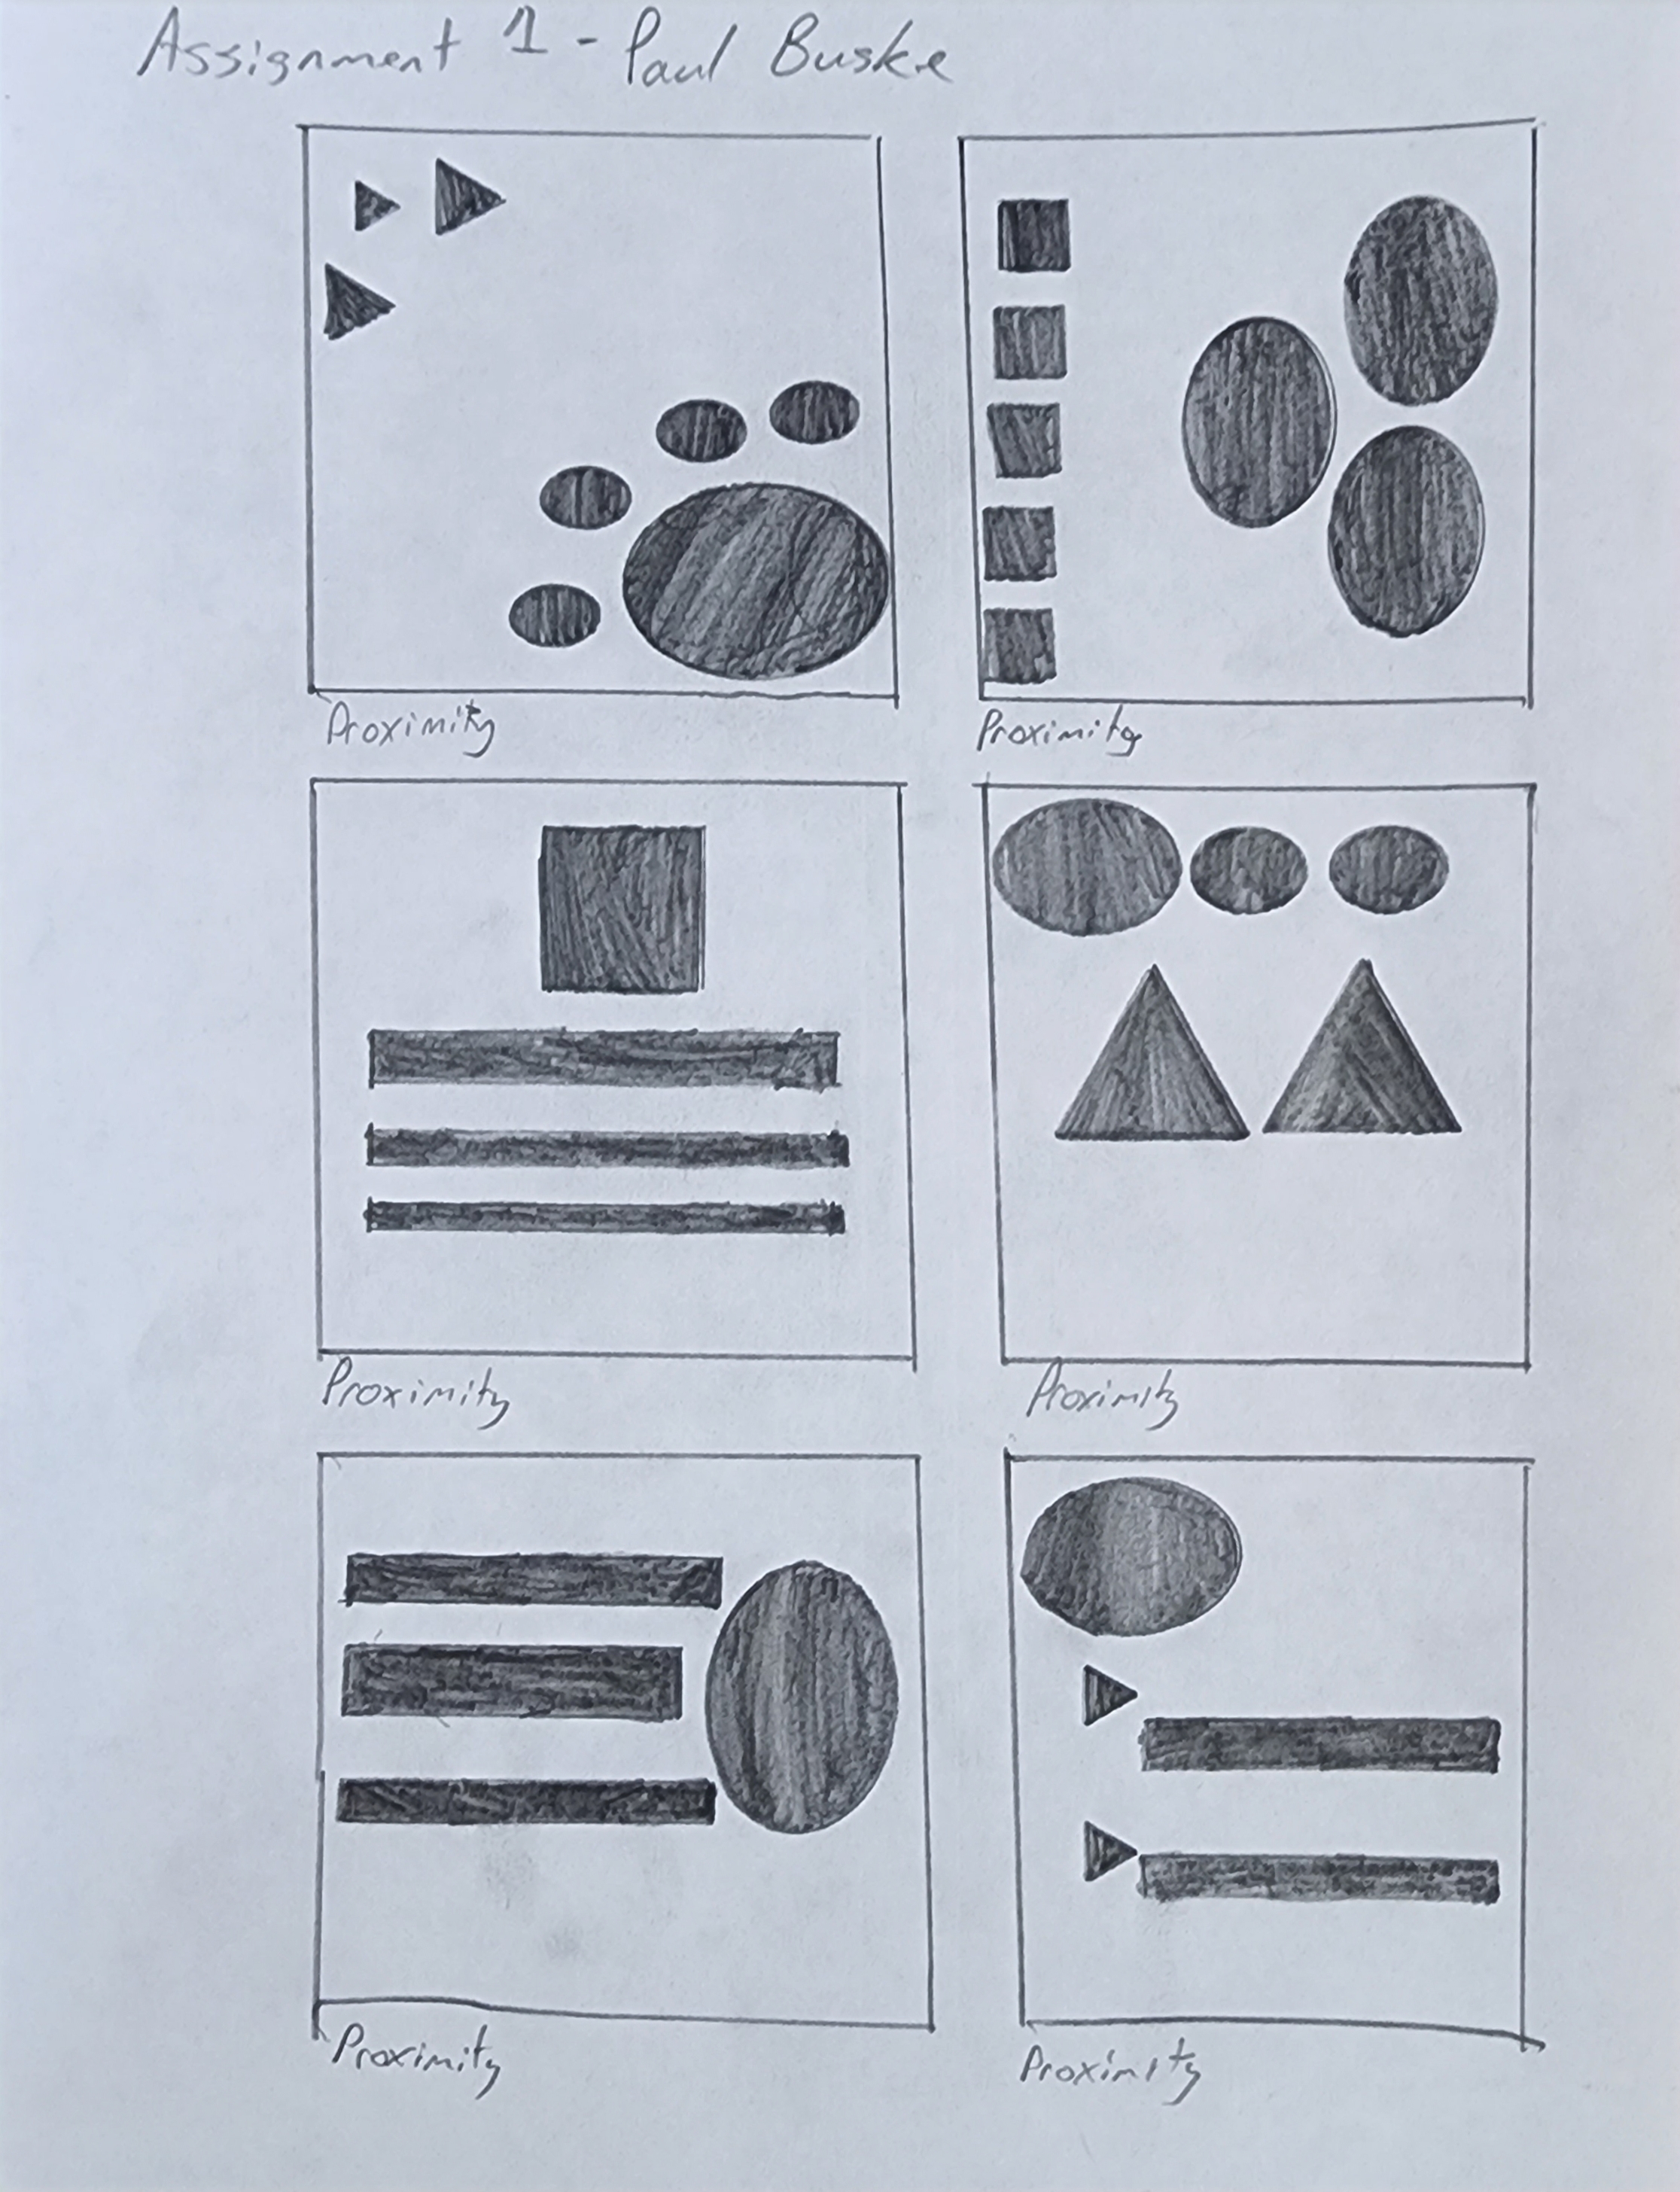 Assignment 1 - Paul Buske
Proximity
Proximity
Proximity
Proximity
Proximity
Proximity